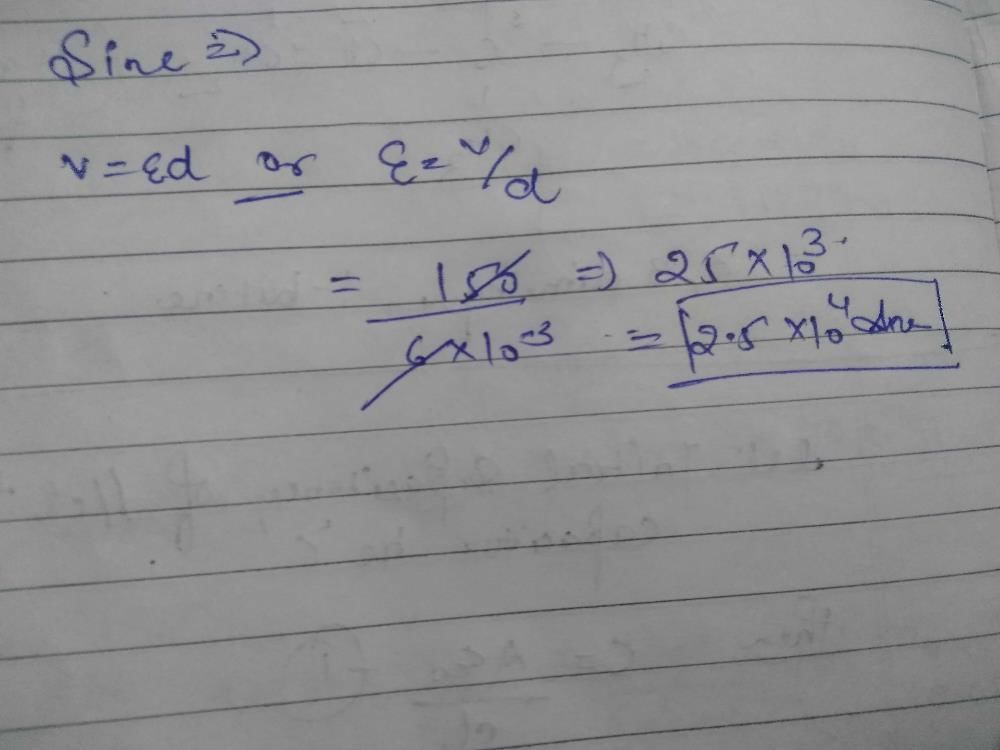 Sine ⇒
v = Ed or E = v/d
= 150 / 6×10⁻³ ⇒ 25×10³
= 2.5×10⁴ Ans